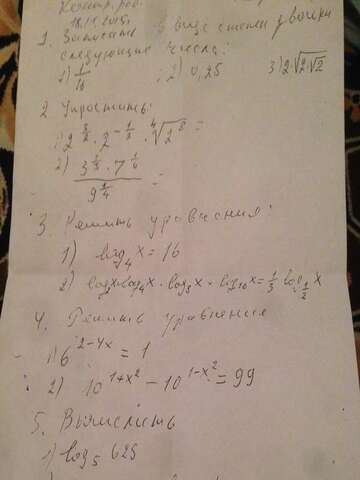 Контр. раб.
1. Записать в виде степени двойки
следующие числа:
1) 1/16 ; 2) 0,25 3) 2√2√2
2. Упростить:
1) 2^(3/2) · 2^(-1/2) · ⁴√2⁸ =
2) (3^(1/3) · 7^(1/6)) / 9^(1/4) =
3. Решить уравнения:
1) log₄x = 16
2) log₂x·log₄x · log₈x · log₁₆x = 1/3 log_(1/2) x
4. Решить уравнения
1) 6^(2-4x) = 1
2) 10^(1+x²) − 10^(1-x²) = 99
5. Вычислить
1) log₅ 625